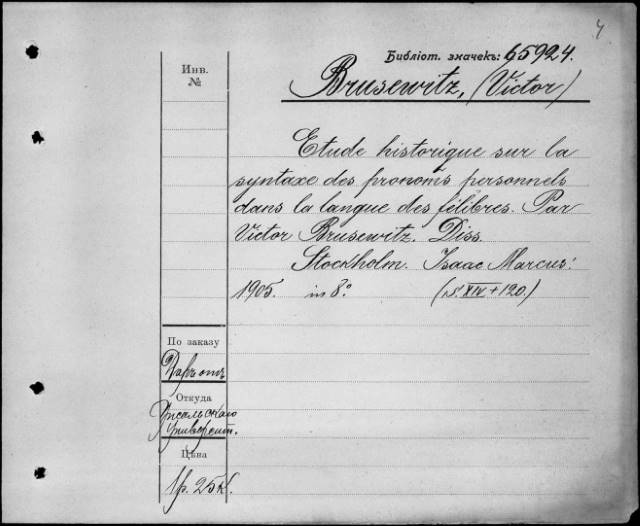 4
Библіот. значекъ: 65924.
Инв.
№
Brusewitz, (Victor)
Etude historique sur la
syntaxe des pronoms personnels
dans la langue des félibres. Par
Victor Brusewitz. Diss.
Stockholm. Isaac Marcus:
1905. in 8º. (S. XIV + 120.)
По заказу
Даръ отъ
Откуда
Упсальскаго
Университ.
Цѣна
1 р. 25 к.